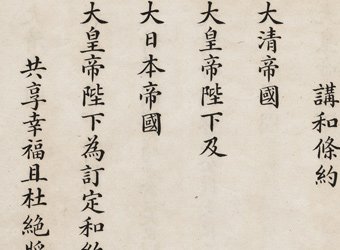 講和條約
大清帝國
大皇帝陛下及
大日本帝國
大皇帝陛下為訂定和約
共享幸福且杜絕將